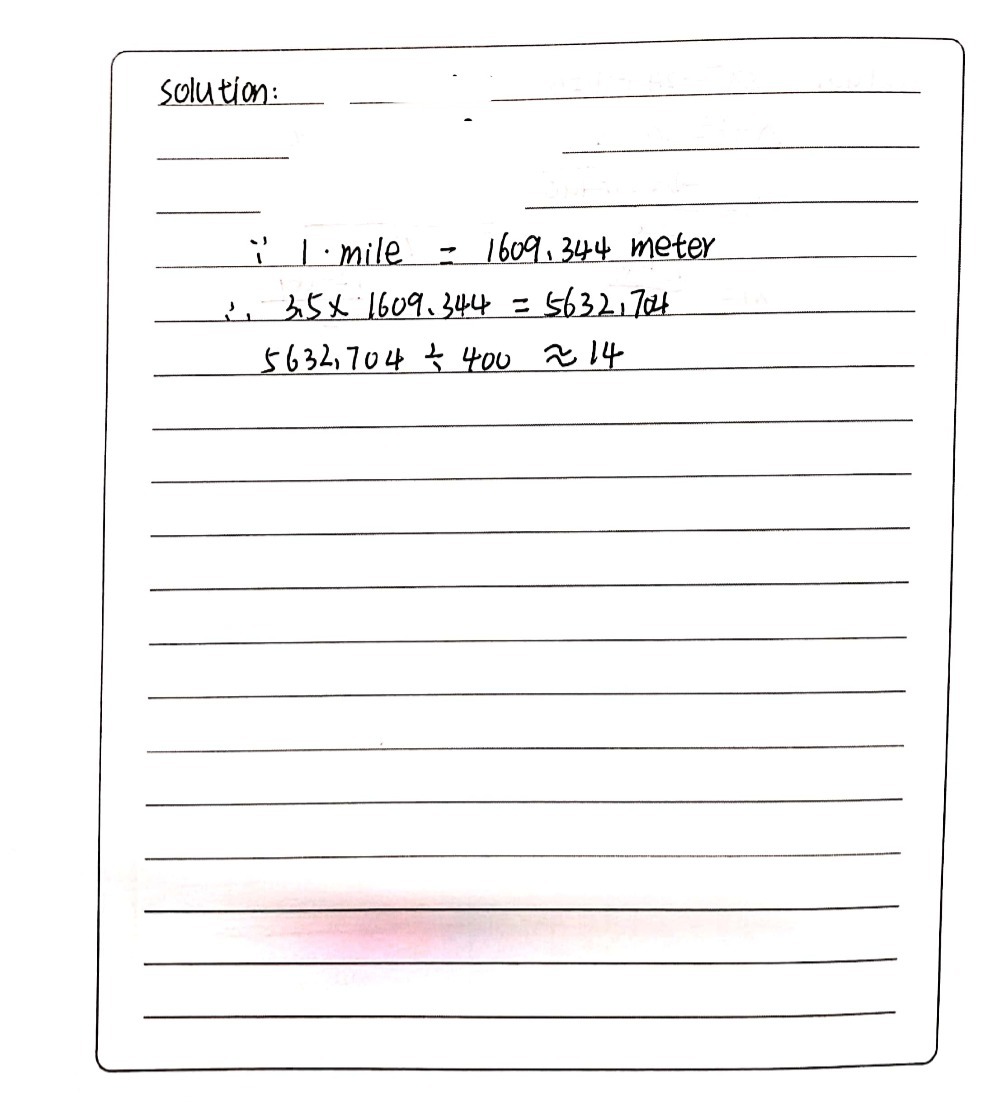 solution:
∵ 1 · mile = 1609.344 meter
∴ 3.5 × 1609.344 = 5632.704
5632.704 ÷ 400 ≈ 14